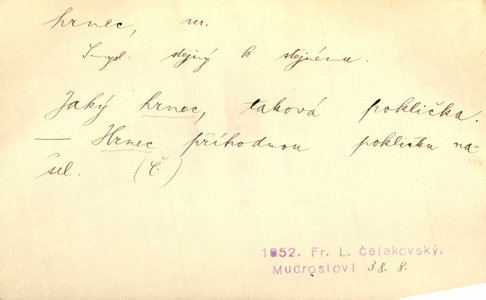 hrnec, m.
Smysl. stejný k stejnému.
Jaký hrnec, taková poklička.
— Hrnec příhodnou pokličku na-
šel. (Č.)
1952. Fr. L. Čelakovský,
Mudrosloví 38. 8.